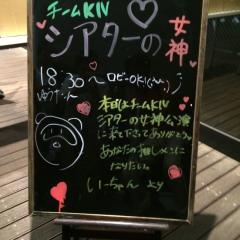 チームKⅣ
シアターの
女神
18:30〜ロビーOK!(
本日はチームKⅣ
シアターの女神公演
に来て下さってありがとう。
あなたの推しメンに
なりたい。
いーちゃん より